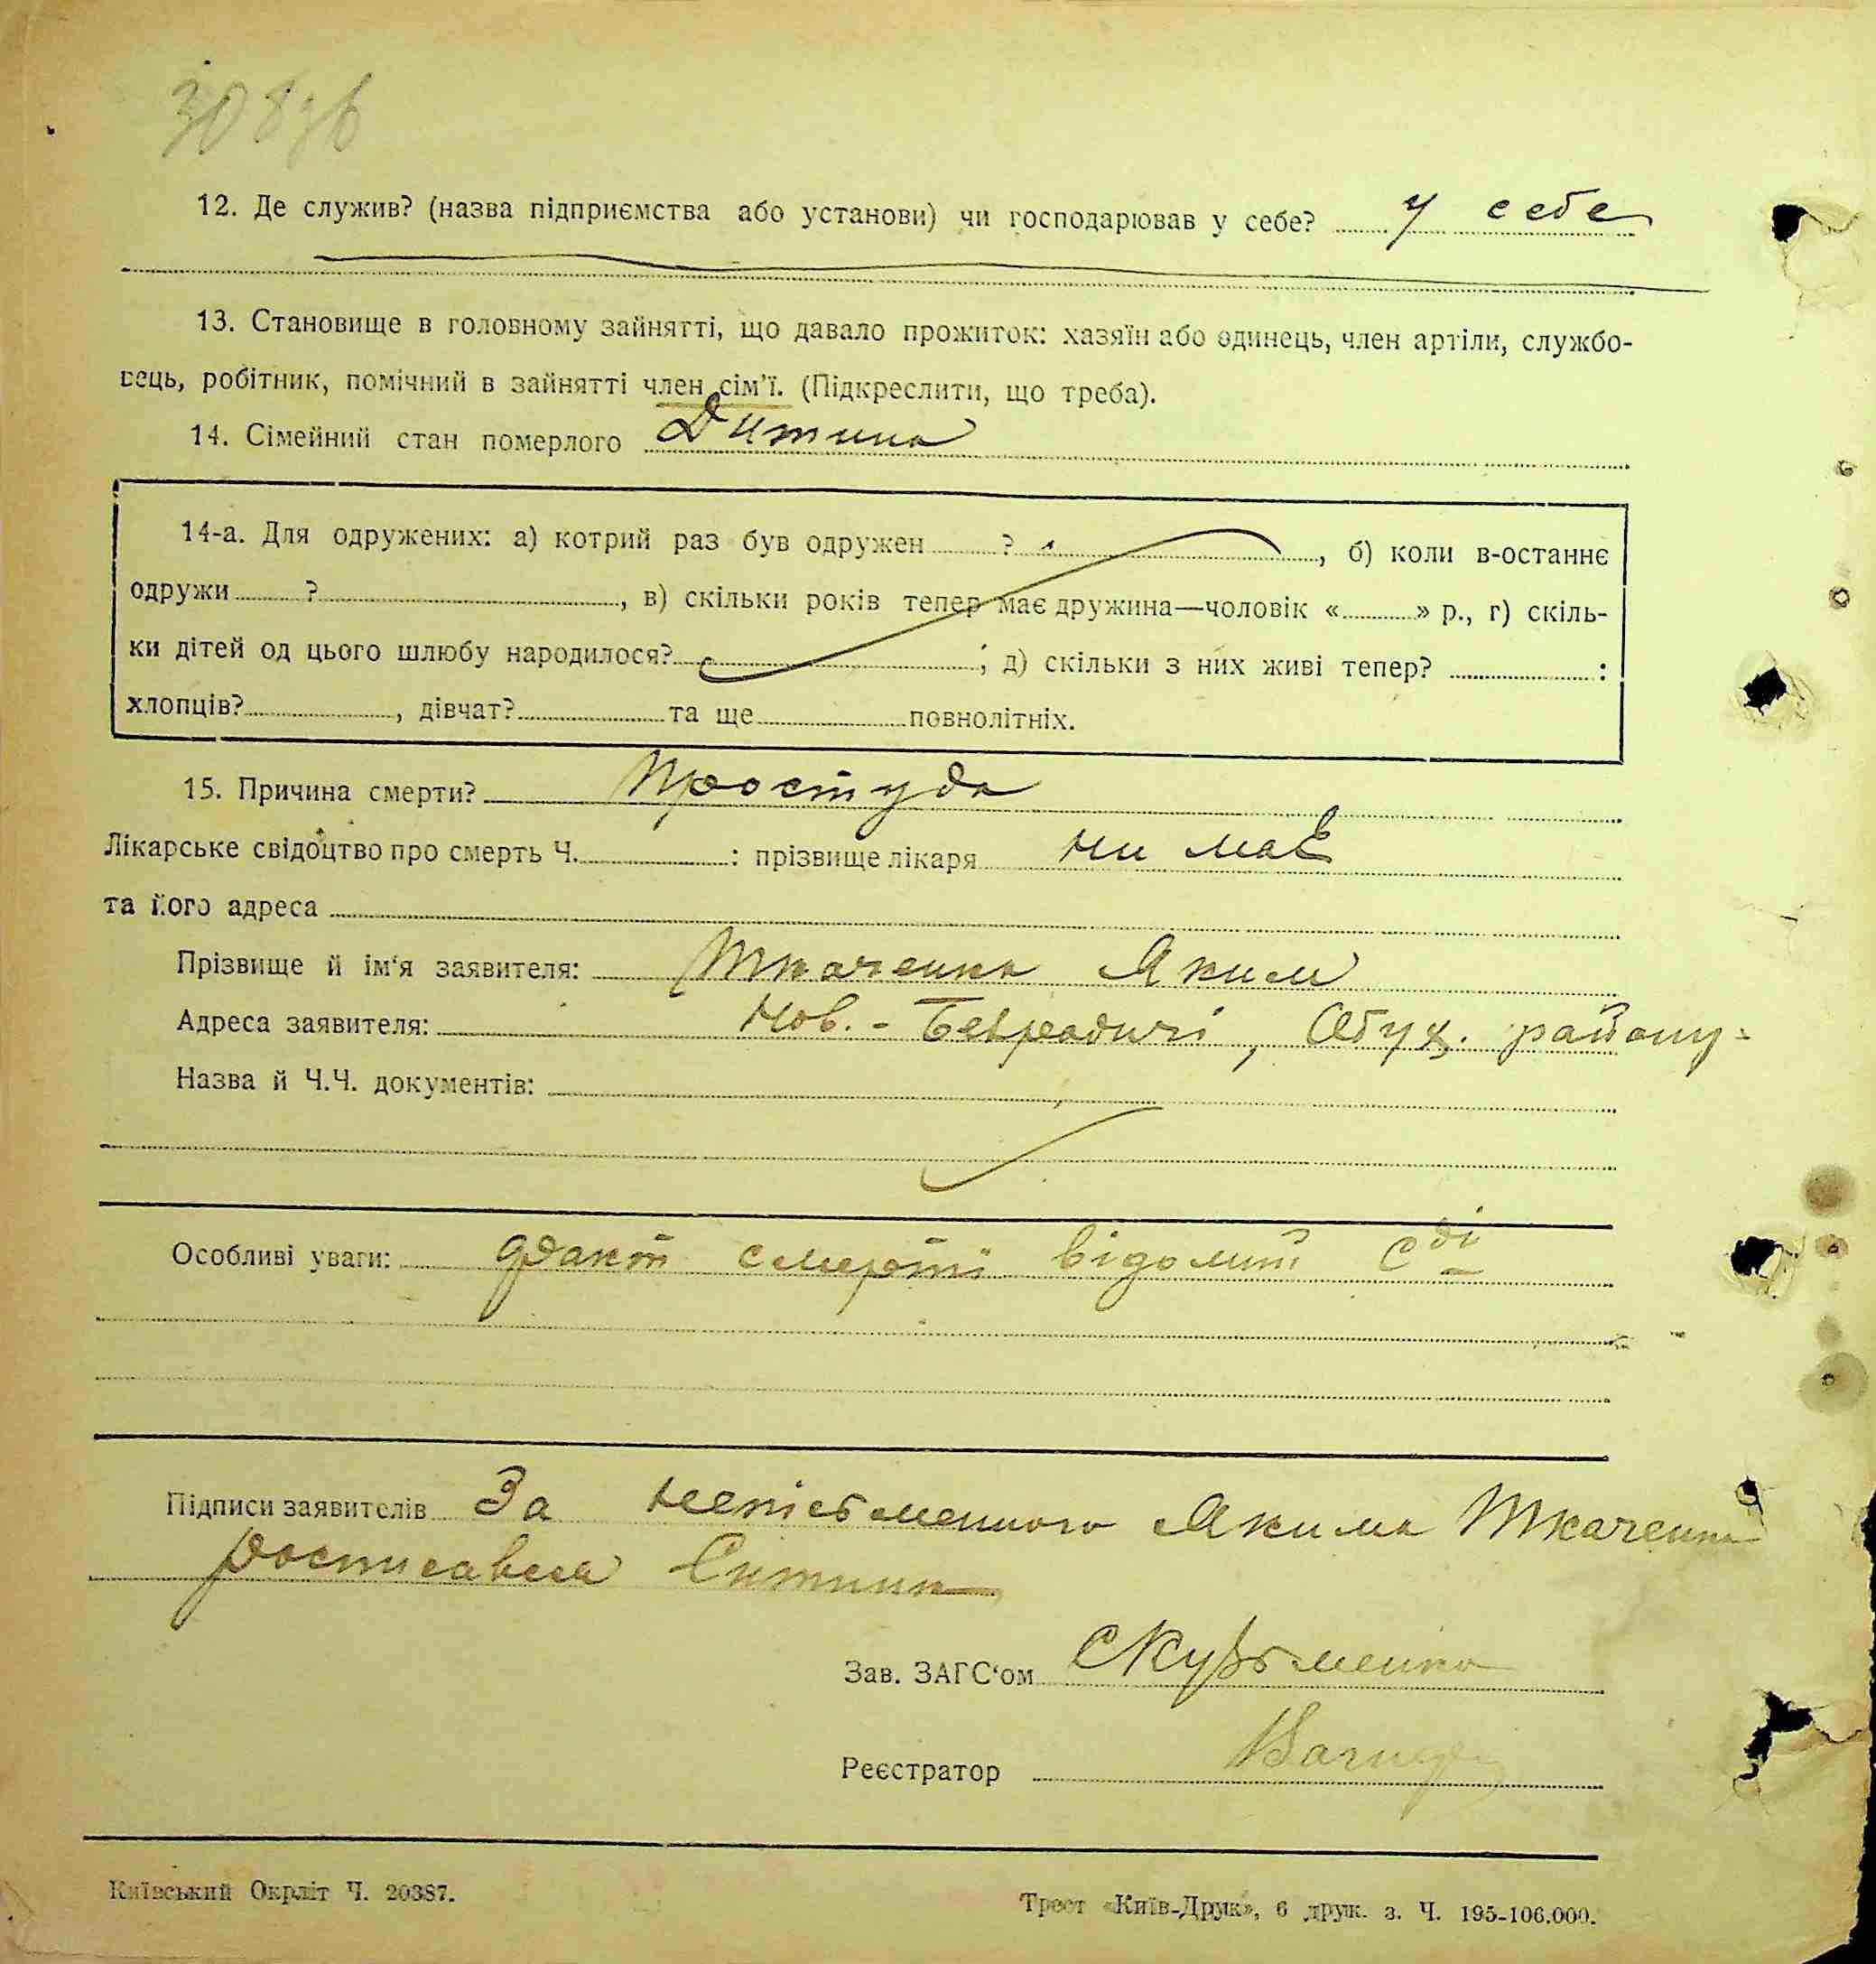 308зв
12. Де служив? (назва підприємства або установи) чи господарював у себе? у себе
13. Становище в головному зайнятті, що давало прожиток: хазяїн або одинець, член артіли, службо-
вець, робітник, помічний в зайнятті член сім'ї. (Підкреслити, що треба).
14. Сімейний стан померлого Дитина
14-а. Для одружених: а) котрий раз був одружен ? , б) коли в-останнє
одружи ? , в) скільки років тепер має дружина—чоловік « » р., г) скіль-
ки дітей од цього шлюбу народилося? ; д) скільки з них живі тепер? :
хлопців? , дівчат? та ще повнолітніх.
15. Причина смерти? Простуда
Лікарське свідоцтво про смерть Ч. : прізвище лікаря ни має
та його адреса
Прізвище й ім'я заявителя: Ткаченко Яким
Адреса заявителя: Нов.-Безрадичі, Обух. району
Назва й Ч.Ч. документів:
Особливі уваги: факт смерті відомий С/ді
Підписи заявителів За неписьменного Якима Ткаченка
росписавсь Ситник
Зав. ЗАГС'ом СКузьменко
Реєстратор
Київський Окрліт Ч. 20387.
Трест «Київ-Друк», 6 друк. з. Ч. 195-106.000.